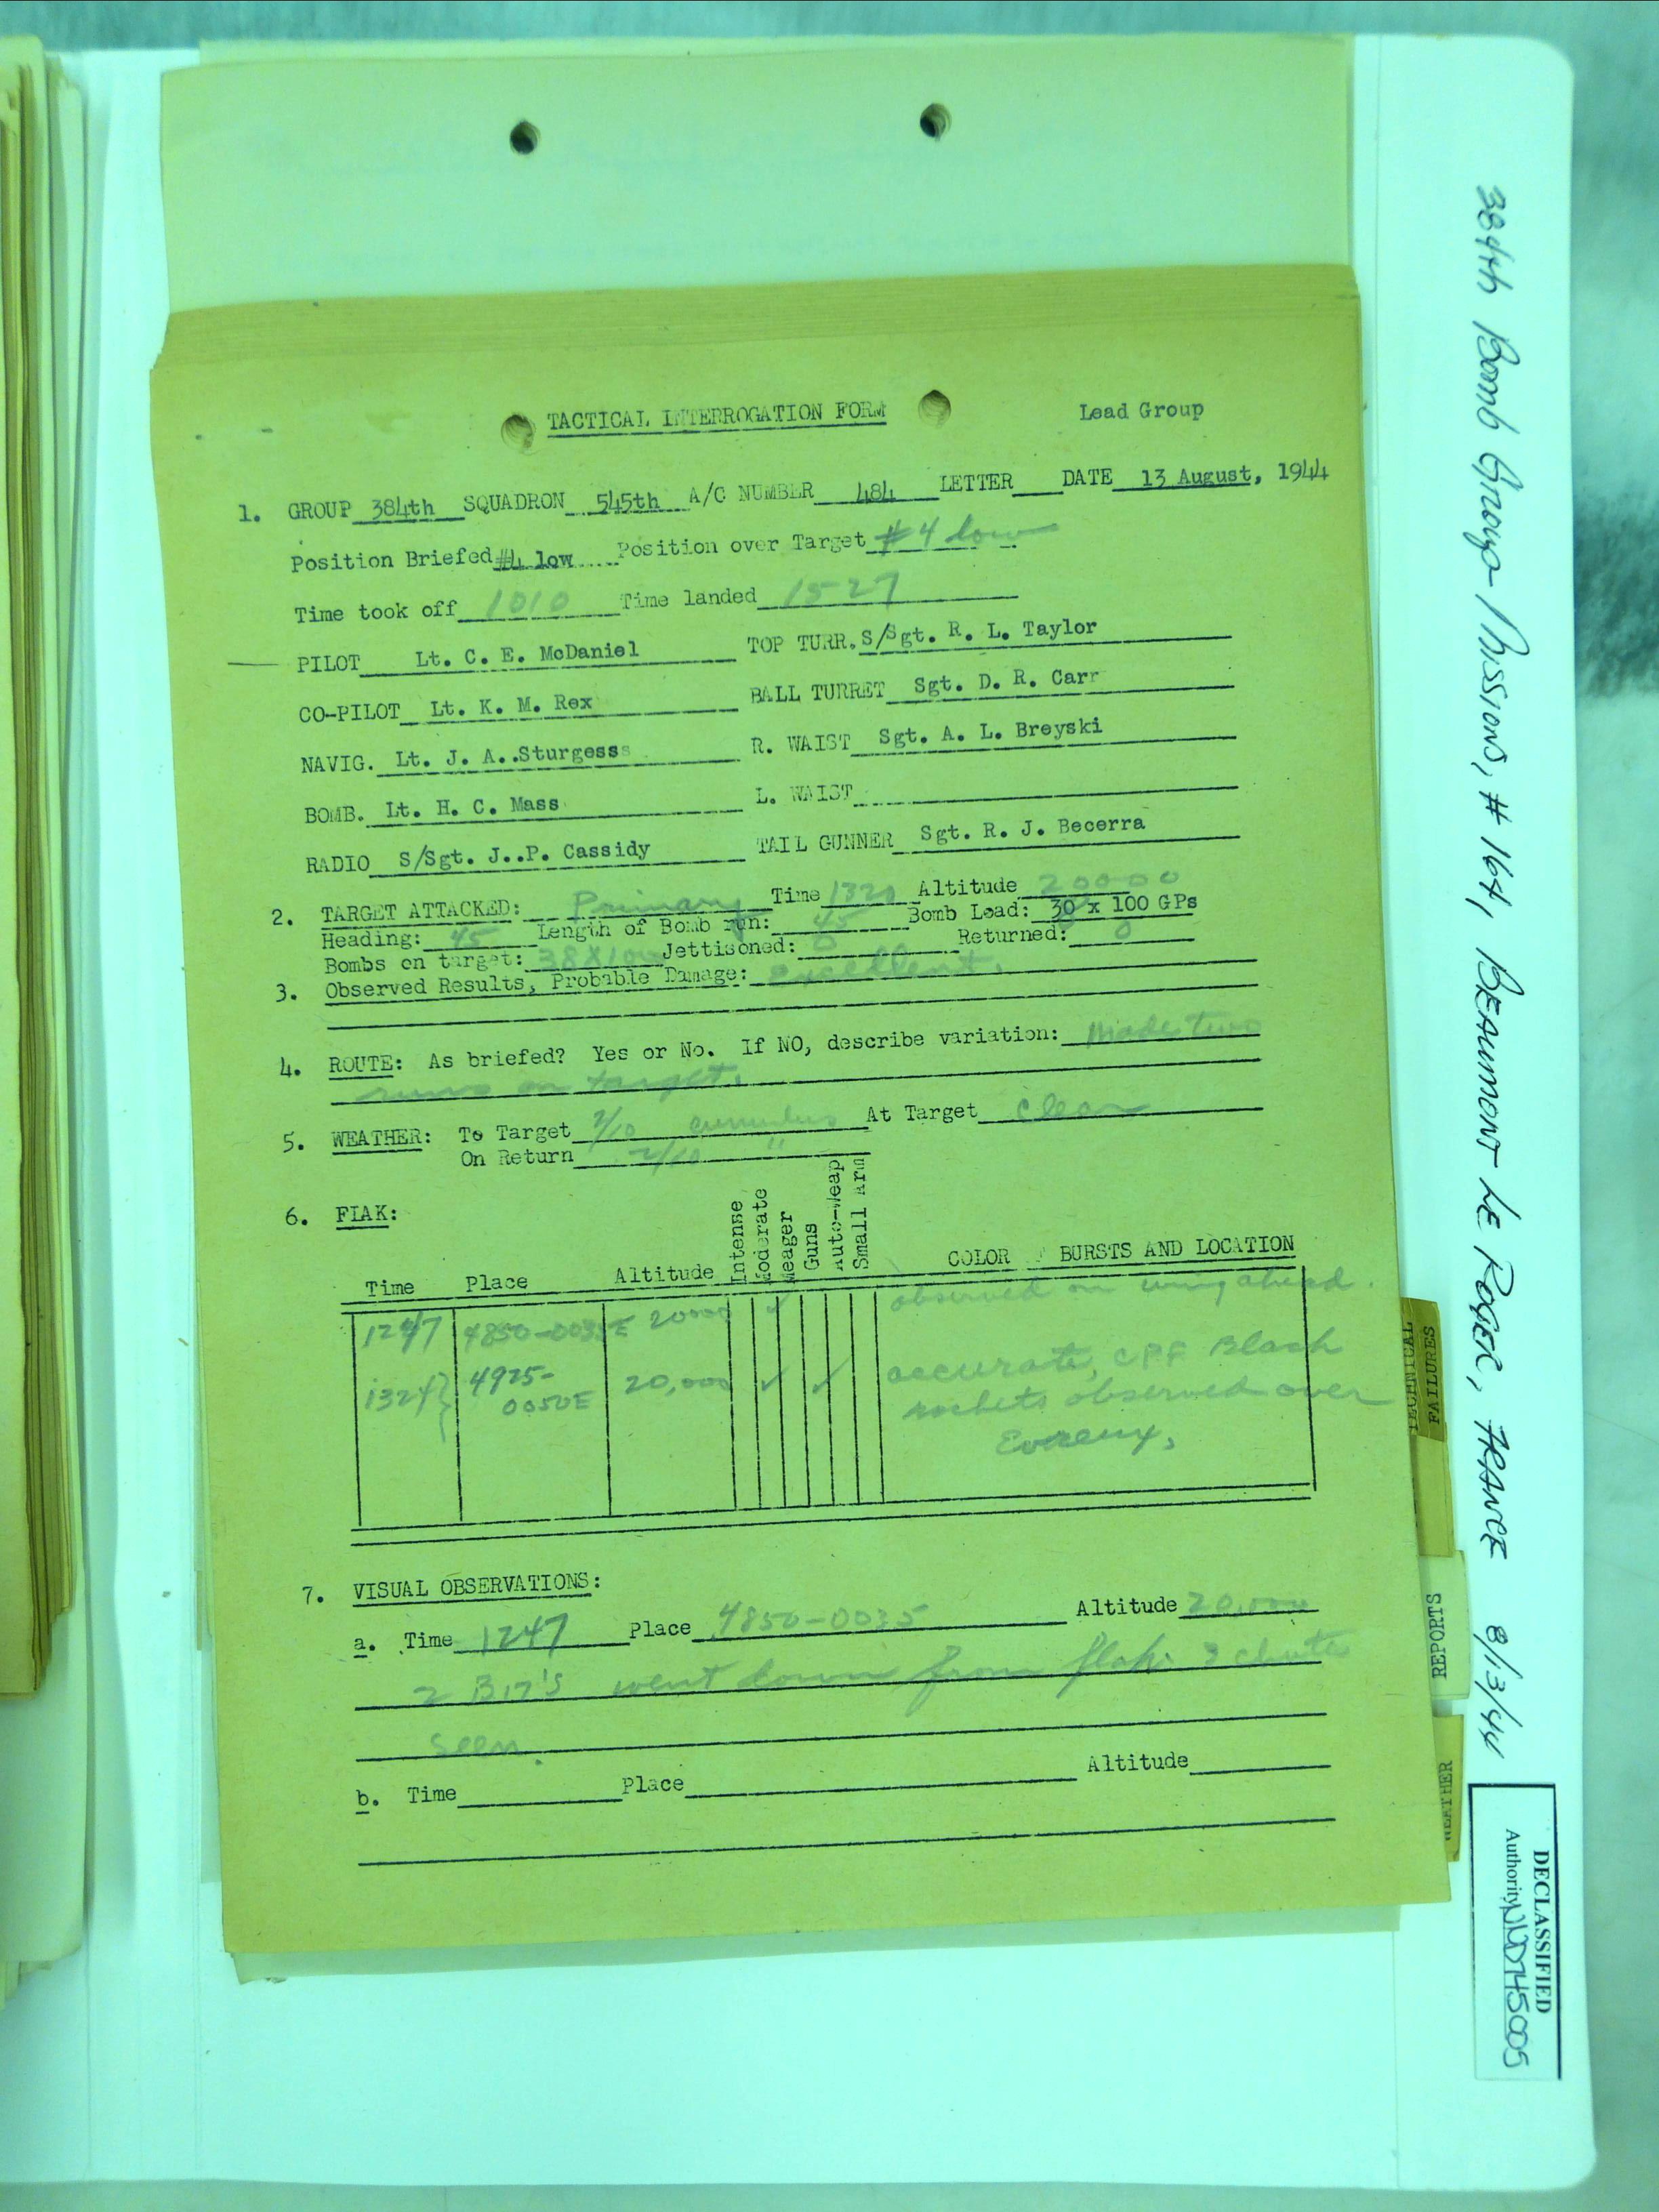 TACTICAL INTERROGATION FORM Lead Group
1. GROUP 384th SQUADRON 545th A/C NUMBER 484 LETTER DATE 13 August, 1944
Position Briefed #4 low Position over Target #4 low
Time took off 1010 Time landed 1527
PILOT Lt. C. E. McDaniel TOP TURR. S/Sgt. R. L. Taylor
CO-PILOT Lt. K. M. Rex BALL TURRET Sgt. D. R. Carr
NAVIG. Lt. J. A..Sturgesss R. WAIST Sgt. A. L. Breyski
BOMB. Lt. H. C. Mass L. WAIST
RADIO S/Sgt. J..P. Cassidy TAIL GUNNER Sgt. R. J. Becerra
2. TARGET ATTACKED: Primary Time Altitude 20000
Heading: 45 Length of Bomb run: 45 Bomb Load: x 100 GPs
Bombs on target: Jettisoned: 0 Returned: 0
3. Observed Results, Probable Damage: Excellent.
4. ROUTE: As briefed? Yes or No. If NO, describe variation: Made two
runs on target.
5. WEATHER: To Target cumulus At Target Clear
On Return 2/10 "
6. FLAK:
Time Place Altitude Intense Moderate Meager Guns Auto-Weap Small Arm COLOR BURSTS AND LOCATION
1247 4850-0035E 20000 ✓ observed on wing ahead.
1324 4925-0050E 20,000 ✓ ✓ accurate, CPF Black
rockets observed over
Evreux,
7. VISUAL OBSERVATIONS:
a. Time 1247 Place 4850-0035 Altitude 20,000
2 B17'S went down from flak. 3 chutes
seen.
b. Time Place Altitude
384th Bomb Group - Missions, # 164, BEAUMONT LE ROGER, FRANCE 8/13/44
TECHNICAL
FAILURES
REPORTS
WEATHER
DECLASSIFIED
Authority NND745005